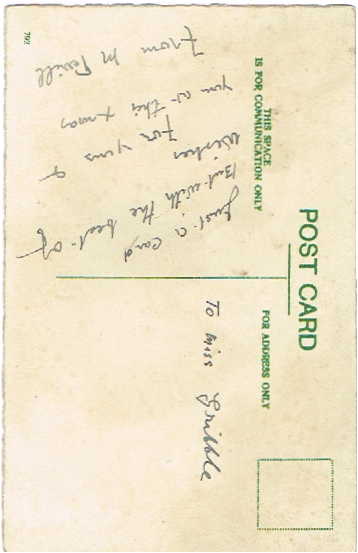 POST CARD
THIS SPACE
IS FOR COMMUNICATION ONLY
FOR ADDRESS ONLY
Just a card
But with the best of
Wishes For yours &
you at this xmas
From M
To Miss Gribble